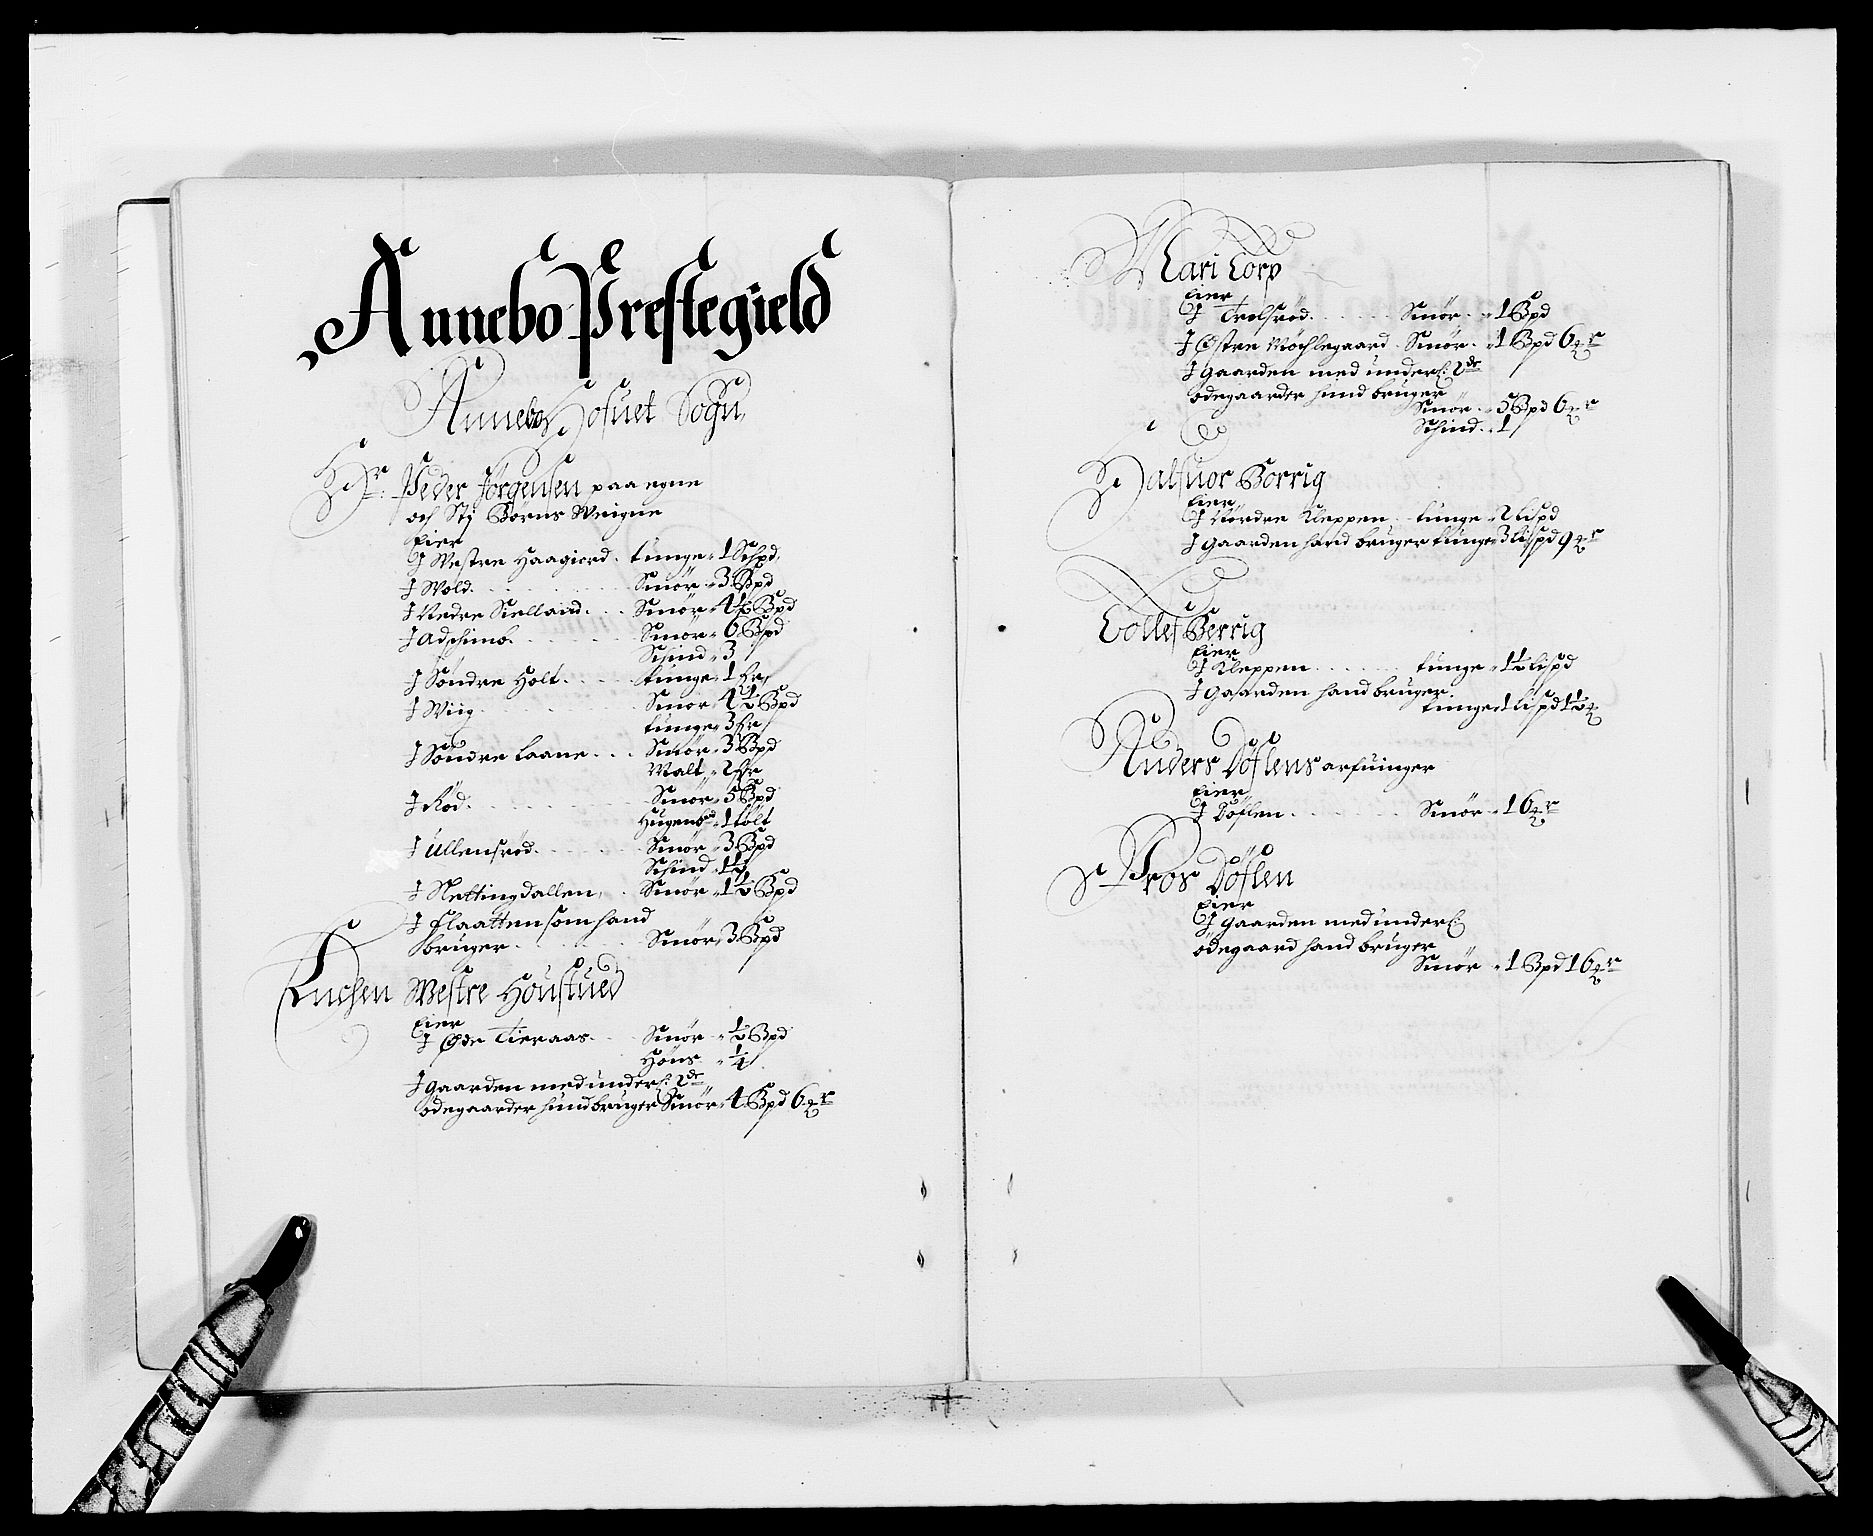 Annebo Prestegield
Annebo Hofuet Sogn
Hr: Peder Jørgensen paa egne
och Stj Børns Weigne
Eier
J Westre Haagiord. tunge 1 Schpd
J Wold. Smør 3 Bpd
J Nedre Sielland. Smør 4½ Bpd
J Adschimb. Smør 6 Bpd
Schind 3
J Søndre Holt. tunge 1 Fr
J Wiig. Smør 4½ Bpd
tunge 3 Fr
J Søndre Laane. Smør 3 Bpd
Malt 2 Fr
J Rød. Smør 5 Bpd
1 tolt
J Ullensrød. Smør 3 Bpd
Schind 1½
J Nettingdallen. Smør 1½ Bpd
J Flaatten som hand
bruger. Smør 3 Bpd
Enchen Westre Houftued
Eier
J Øde Tieraas. Smør ½ Bpd
Høns ¼
J gaarden med underl: 2de
ødegaarder hund bruger Smør 4 Bpd 6 mr
Mari Torp
Eier
J Trolsrød. Smør 1 Bpd
J Østre Møchlegaard Smør 1 Bpd 6 mr
J gaarden med underl: 2de
ødegaarder hund bruger
Smør 5 Bpd 6 mr
Schind 1
Halfuor Borrig
Eier
J Nordre Kleppen tunge 2 Lispd
J gaarden hand bruger tunge 3 Lispd 9 mr
Tollef Berrig
Eier
J Kleppen tunge 1½ Lispd
J gaarden hand bruger.
tunge 1 Lispd 1½
Anders Døflens arfuinger
Eier
J Døflen. Smør 16 mr
Pros Døflen
Eier
J gaarden med underl:
ødegaard hand bruger
Smør 1 Bpd 16 mr